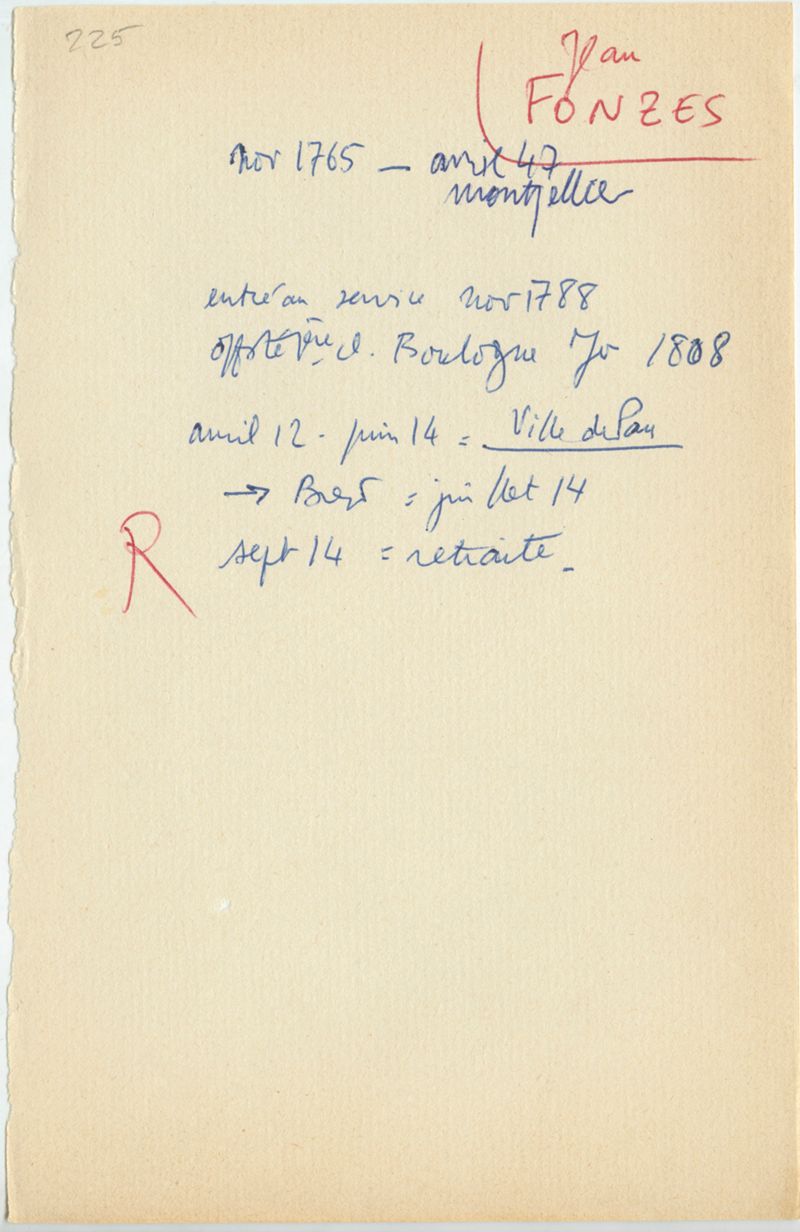 225
Jean
FONZES
nov 1765 — avril 47
montpellier
entré au service nov 1788
Boulogne 1808
avril 12 - juin 14 = Ville de Pau
→ Brest = juillet 14
R
sept 14 = retraite -